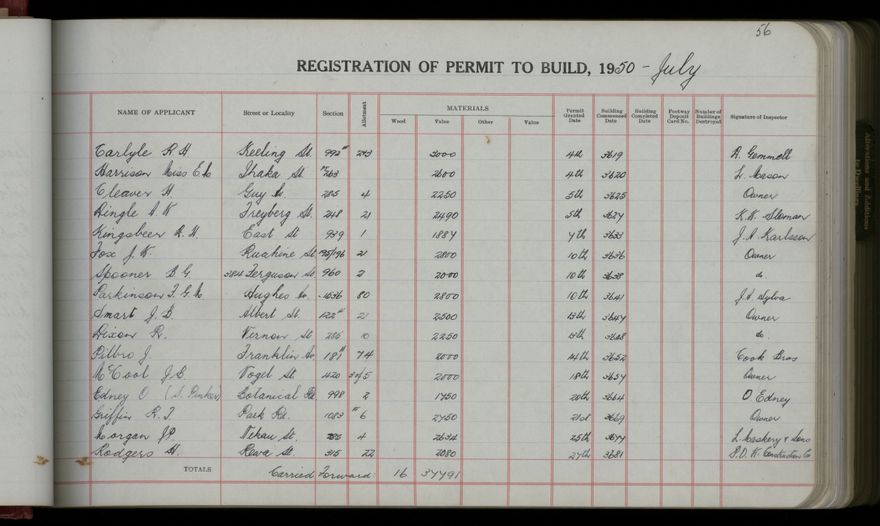 56
REGISTRATION OF PERMIT TO BUILD, 1950 - July
NAME OF APPLICANT Street or Locality Section Allotment MATERIALS Permit Granted Date Building Commenced Date Building Completed Date Footway Deposit Card No. Number of Buildings Destroyed Signature of Inspector
Wood Value Other Value
Carlyle R. H. Keeling St. 3000 4th 3619 R. Gemmell
Harrison Miss E. Shaka St 263 2600 4th 3620 L. Mason
Cleaver H. Guy 285 4 2250 5th 3625 Owner
Freyberg St. 248 21 2490 5th 3627 K.K. Sloman
Kingsbeer R. H. East St 939 1 1887 7th J. A. Karlsson
Fox J. K. Ruahine St 21 2800 10th 3636 Owner
Spooner B. G. 384 Ferguson St 960 2 2000 10th 3638 do.
Parkinson F. G. Hughes 1036 80 2800 10th 3641 J.A. Sylva
Smart J. B. Albert St 122 21 2500 3647 Owner
Dixon R. Vernon St 285 10 2250 3648 do.
Pilbro J. Franklin 181 74 2000 14th 3652 Cook Bros
McCool J. B. Vogel St 420 5 2000 18th 3657 Owner
Edney O. Botanical Rd. 998 2 1750 20th 3664 O Edney
Griffin R. J. Park Rd. 1083 6 2750 21st 3669 Owner
Morgan J.P. Nikau St. 4 2634 25th 3677 L. Maskery & Sons
Rodgers H. Rewa St. 315 22 2080 27th 3681 P.D.K. Construction Co
TOTALS Carried Forward: 16 37791
Alterations and Additions
to Dwellings